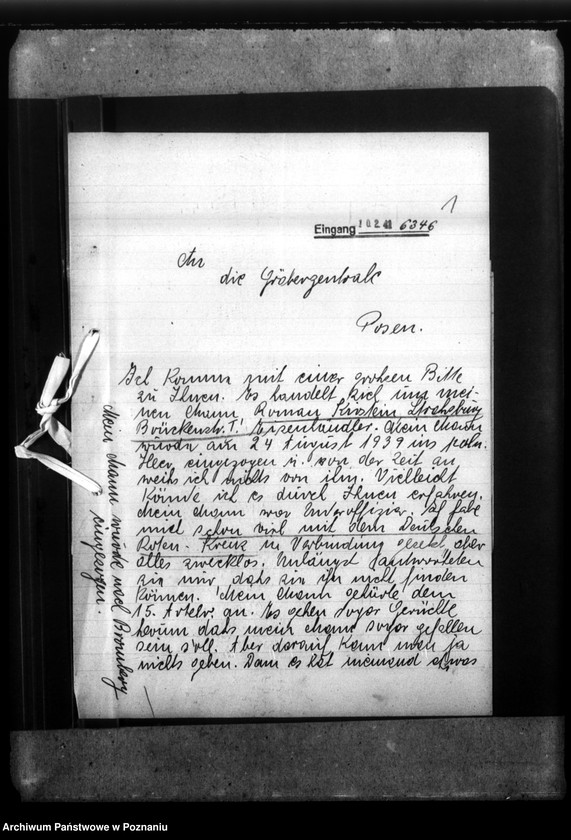 1
Eingang 10 2 41 6346
An
die Gräberzentrale
Posen.
Ich komme mit einer grohsen Bitte
zu Ihnen. Es handelt sich um mei-
nen Mann, Roman Kirstein Strahsburg
Brückenstr. 1. Eisenhändler. Mein Mann
wurde am 24 August 1939 ins poln.
Heer eingezogen u. von der Zeit an
weihs ich nichts von ihm. Vielleicht
könnte ich es durch Ihnen erfahren.
Mein Mann war Unteroffizier. Ich habe
mich schon viel mit dem Deutschen
Roten-Kreuz in Verbindung gesetzt aber
alles zwecklos. Unlängst antworteten
sie mir, dahs sie ihn nicht finden
können. Mein Mann gehörte dem
15. Artelr. an. Es gehen sogar Gerüchte
herum dahs mein Mann sogar gefallen
sein soll. Aber darauf kann man ja
nichts geben. Denn es hat niemand etwas
Mein Mann wurde nach Bromberg
eingezogen.
Archiwum Państwowe w Poznaniu